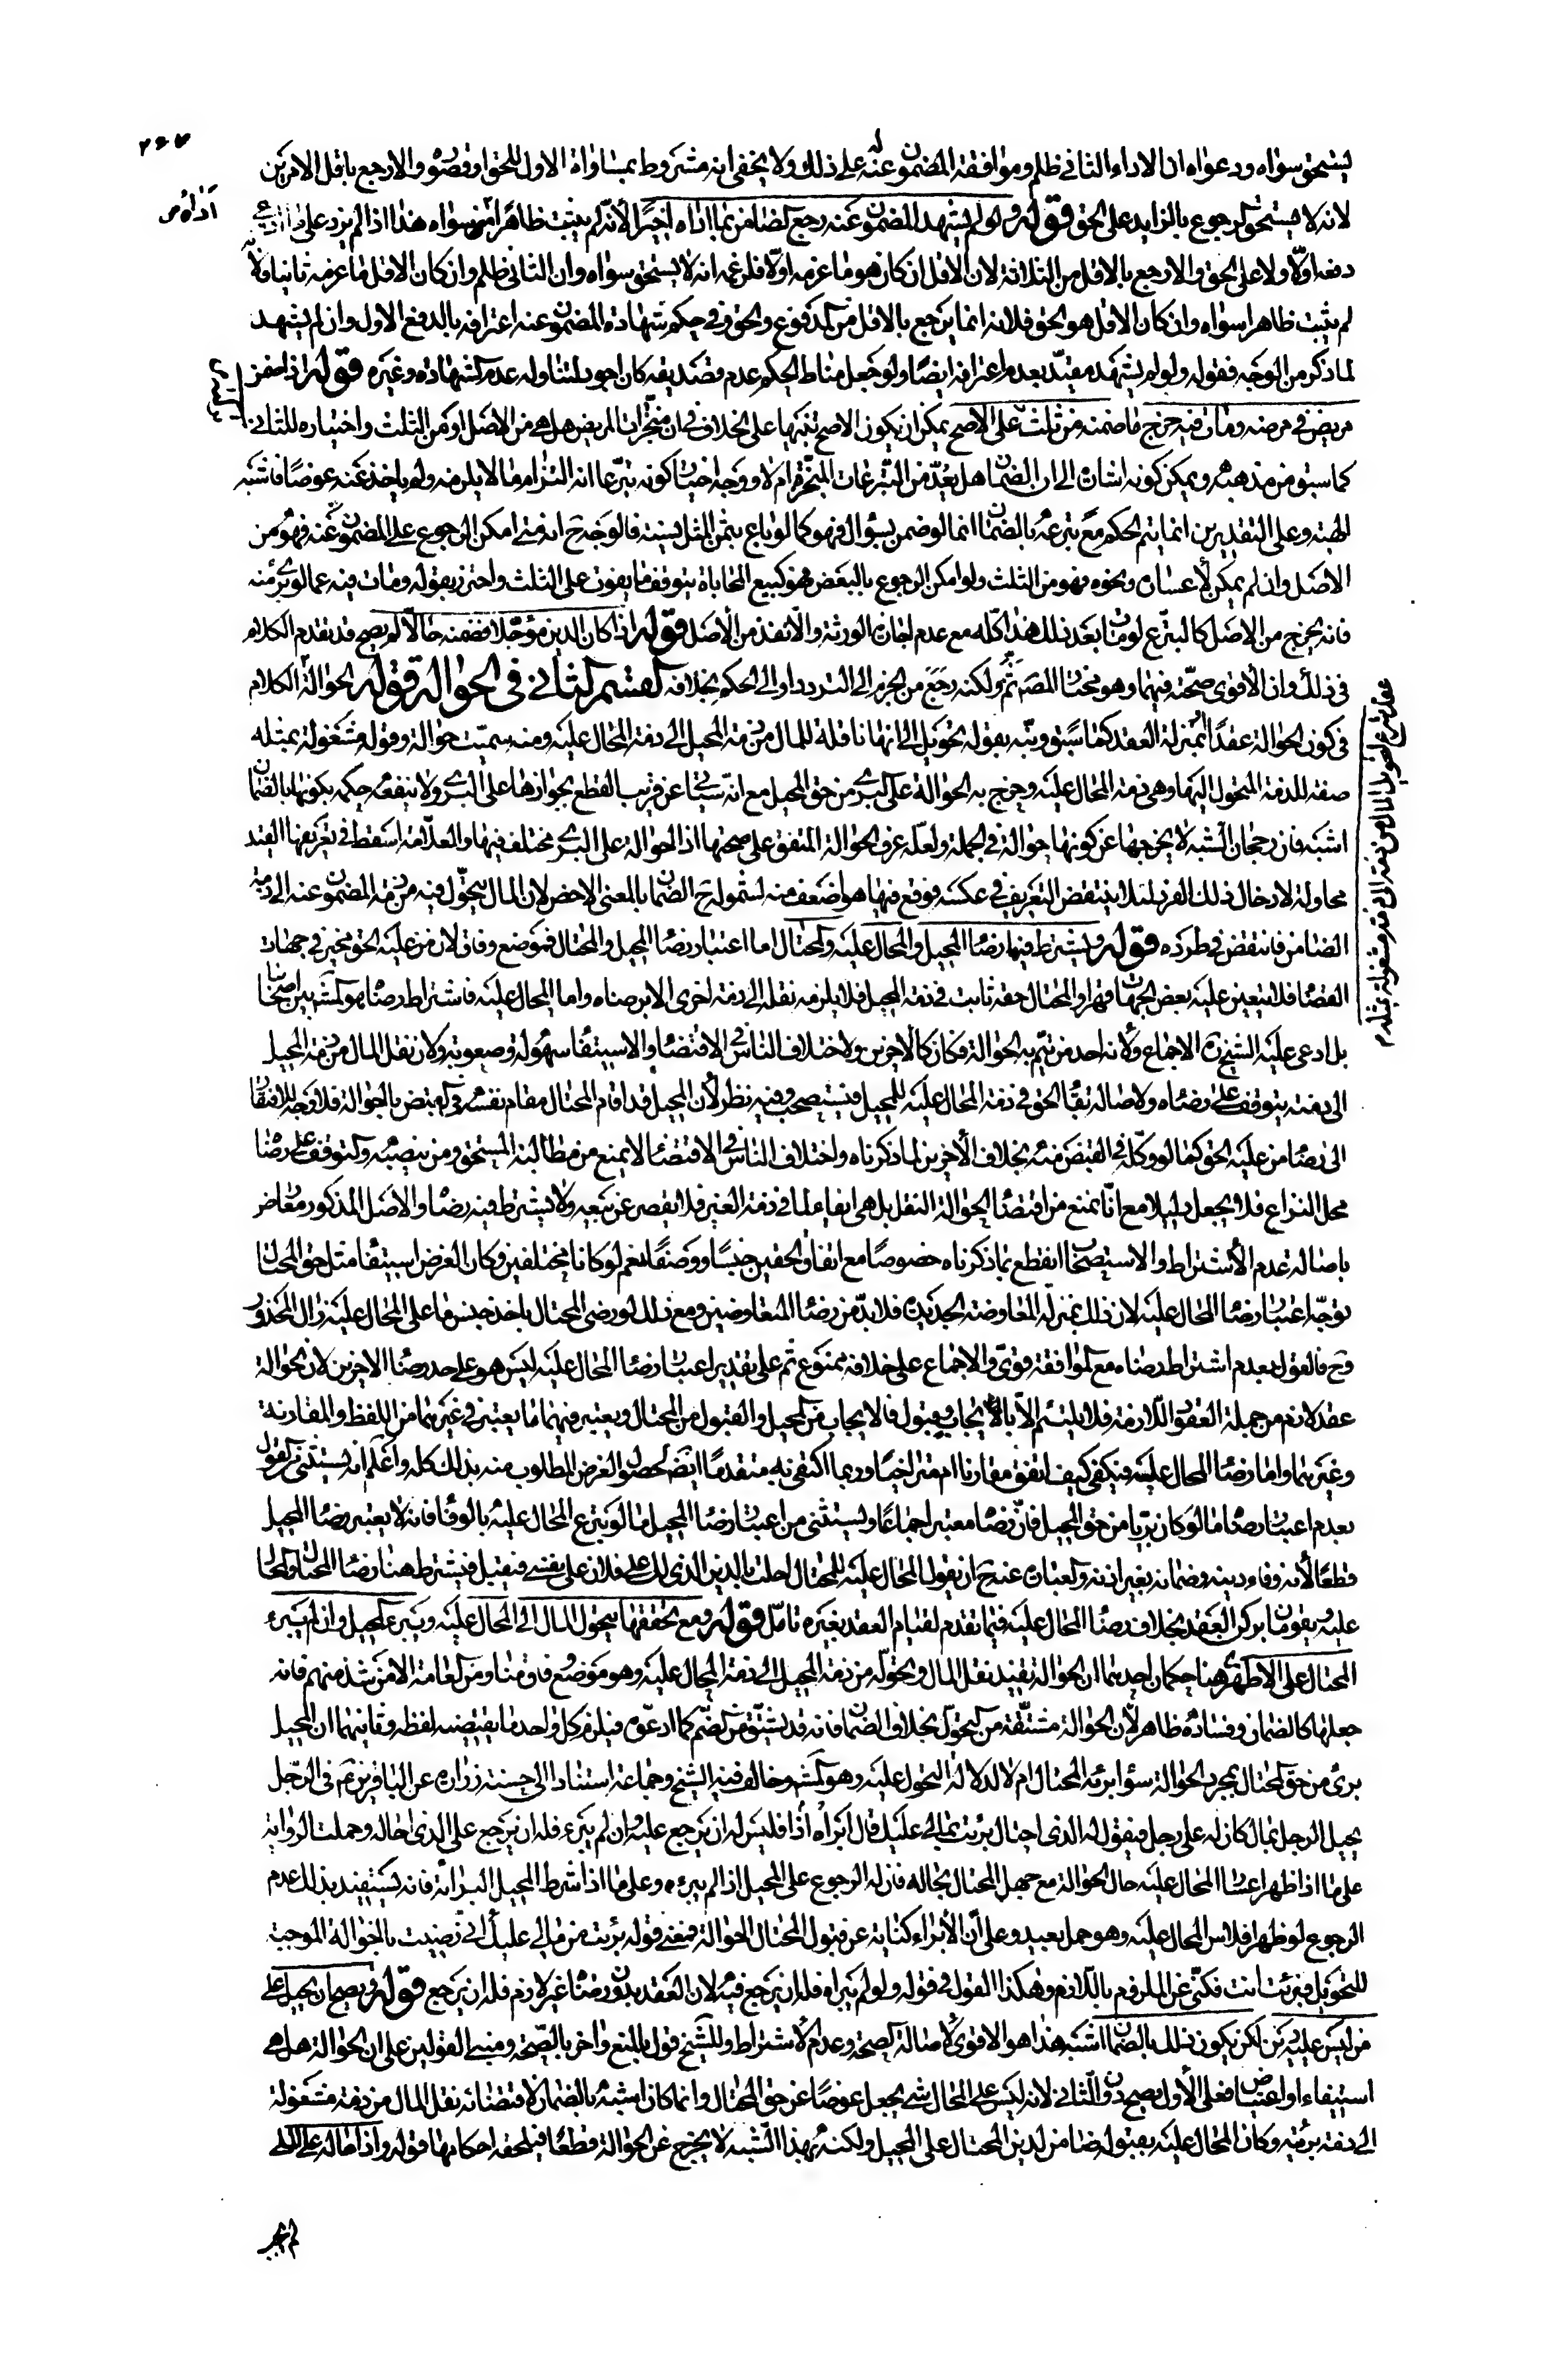 ٢٤٧
اداه ص
ليستحق سواه ودعواه ان الاداء الثاني ظلم وموافقة المضمون عنه له على ذلك ولا يخفى انه مشروط بمساواة الاول للحق او قصوره والا رجع باقل الامرين
لانه لا يستحق الرجوع بالزايد على الحق قوله ولو لم يشهد المضمون عنه رجع الضامن بما اداه اخيرا لانه لم يثبت ظاهرا سواه هذا اذا لم يزد على ما
دفعه اولا ولا على الحق والا رجع بالاقل من الثلاثة لان الاقل ان كان هو ما غرمه اولا فلزعمه انه لا يستحق سواه وان الثاني ظلم وان كان الاقل ما غرمه ثانيا فلانه
لم يثبت ظاهرا سواه وان كان الاقل هو الحق فلانه انما يرجع بالاقل من المدفوع والحق وفي حكم شهادة المضمون عنه اعترافه بالدفع الاول وان لم يشهد
لما ذكر من الوجه فقوله ولو لم يشهد مقيد بعدم اعترافه ايضا ولو جعل مناط الحكم عدم تصديقه كان اجود لتناوله عدم الشهادة وغيره قوله اذا ضمن
مريض في مرضه ومات فيه خرج ما ضمنه من ثلثه على الاصح يمكن ان يكون الاصح تنبيها على الخلاف في ان منجزات المريض هل هي من الاصل او من الثلث واختياره للثاني
كما سبق من مذهبه ويمكن كونه اشارة الى ان الضمان هل يعد من التبرعات المنجزة ام لا ووجه اختيار كونه تبرعا انه التزام ما لا يلزمه ولم ياخذ عنه عوضا فاشبه
الهبة وعلى التقديرين انما يتم الحكم مع تبرعه بالضمان اما لو ضمن بسؤال فهو كما لو باع بثمن المثل نسيئة فالوجه ح انه متى امكن الرجوع على المضمون عنه فهو من
الاصل وان لم يمكن لاعساره ونحوه فهو من الثلث ولو امكن الرجوع بالبعض فهو كبيع المحاباة يتوقف ما يفوت على الثلث واحترز بقوله ومات فيه عما لو برئ منه
فانه يخرج من الاصل كالتبرع لو مات بعد ذلك هذا كله مع عدم اجازة الورثة والا نفذ من الاصل قوله اذا كان الدين مؤجلا فضمنه حالا لم يصح قد تقدم الكلام
في ذلك وان الاقوى صحته فيهما وهو مختار المصنف ثم ولكنه رجع من الجزم الى التردد او الى الحكم بخلافه القسم الثاني في الحوالة قوله الحوالة الكلام
في كون الحوالة عقدا بمنزلة العقد كما سبق ونبه بقوله تحويل الى انها ناقلة للمال من ذمة المحيل الى ذمة المحال عليه ومنه سميت حوالة وقوله مشغولة بمثله
صفة للذمة المتحول اليها وهي ذمة المحال عليه وخرج به الحوالة على البرئ من حق المحيل مع انه سياتي عن قريب القطع بجوازها على البرئ ولا ينفعه حكمه بكونها بالضمان
اشبه فان رجحان الشبه لا يخرجها عن كونها حوالة في الجملة ولعله عرف الحوالة المتفق على صحتها اذ الحوالة على البرئ مختلف فيها والعلامة اسقط في تعريفها القيد
محاولة لادخال ذلك الفرد لئلا ينتقض التعريف في عكسه فوقع فيما هو اضعف منه لشموله ح الضمان بالمعنى الاخص لان المال يتحول فيه من ذمة المضمون عنه الى ذمة
الضامن فانتقض في طرده قوله ويشترط فيها رضا المحيل والمحال عليه والمحتال اما اعتبار رضا المحيل والمحتال فموضع وفاق لان من عليه الحق مخير في جهات
القضا فلا يتعين عليه بعض الجهات قهرا والمحتال حقه ثابت في ذمة المحيل فلا يلزمه نقله الى ذمة اخرى الا برضاه واما المحال عليه فاشتراط رضاه هو المشهور بين اصحابنا
بل ادعى عليه الشيخ ره الاجماع ولانه احد من تتم به الحوالة فكان كالاخرين ولاختلاف الناس في الاقتضا والاستيفا سهولة وصعوبة ولان نقل المال من ذمة المحيل
الى ذمته يتوقف على رضاه ولاصالة بقا الحق في ذمة المحال عليه للمحيل فيستصحب وفيه نظر لان المحيل قد اقام المحتال مقام نفسه في القبض بالحوالة فلا وجه للافتقار
الى رضا من عليه الحق كما لو وكله في القبض منه بخلاف الاخرين لما ذكرناه واختلاف الناس في الاقتضا لا يمنع من مطالبة المستحق ومن ينصبه والتوقف على رضا
محل النزاع فلا يجعل دليلا مع انا نمنع من اقتضا الحوالة النقل بل هي ايفاء لما في ذمة الغير فلا يقصر عن بيعه ولا يشترط فيه رضا والاصل المذكور معارض
باصالة عدم الاشتراط والاستصحاب انقطع بما ذكرناه خصوصا مع اتفاق الحقين جنسا ووصفا نعم لو كانا مختلفين وكان الغرض استيفا مثل حق المحتال
توجه اعتبار رضا المحال عليه لان ذلك بمنزلة المعاوضة الجديدة فلا بد من رضا المتعاوضين ومع ذلك لو رضي المحتال باخذ جنس ما على المحال عليه زال المحذور
وح فالقول بعدم اشتراط رضاه مع الموافقة قوي والاجماع على خلافه ممنوع ثم على تقدير اعتبار رضا المحال عليه ليس هو على حد رضا الاخرين لان الحوالة
عقد لازم من جملة العقود اللازمة فلا يلتئم الا بالايجاب وقبول فالايجاب من المحيل والقبول من المحتال ويعتبر فيهما ما يعتبر في غيرهما من اللفظ والمقارنة
وغيرهما واما رضا المحال عليه فيكفي كيف اتفق مقارنا ام متراخيا وربما اكتفى به متقدما ايضا لحصول الغرض المطلوب منه بذلك كله واعلم انه يستثنى من القول
بعدم اعتبار رضاه ما لو كان بريا من حق المحيل فان رضاه معتبر اجماعا ويستثنى من اعتبار رضا المحيل ما لو تبرع المحال عليه بالوفا فانه لا يعتبر رضا المحيل
قطعا لانه وفاء دينه وضمانه بغير اذنه والعبارة عنه ح ان يقول المحال عليه للمحتال احلت بالدين الذي لك على فلان على نفسي فيقبل فيشترط هنا رضا المحتال والمحال
عليه ويقومان بركن العقد بخلاف رضا المحال عليه فيما تقدم لقيام العقد بغيره تامل قوله ومع تحققها يتحول المال الى المحال عليه ويبرئ المحيل وان لم يبرءه
المحتال على الاظهر هنا حكمان احدهما ان الحوالة تفيد نقل المال وتحوله من ذمة المحيل الى ذمة المحال عليه وهو موضع وفاق منا ومن العامة الا من شذ منهم فانه
جعلها كالضمان وفساده ظاهر لان الحوالة مشتقة من التحول بخلاف الضمان فانه قد يشتق من الضم كما ادعوه فيلزم كل واحد ما يقتضيه لفظه وثانيهما ان المحيل
برئ من حق المحتال بمجرد الحوالة سوا ابرئه المحتال ام لا لدلالة التحول عليه وهو المشهور وخالف فيه الشيخ وجماعة استنادا الى حسنة زرارة عن الباقرين ع في الرجل
يحيل الرجل بمال كان له على رجل فيقول له الذي احتال برئت مما لي عليك قال اذا ابراه فليس له ان يرجع عليه وان لم يبرءه فله ان يرجع على الذي احاله وحملت الرواية
على ما اذا ظهر اعسار المحال عليه حال الحوالة مع جهل المحتال بحاله فان له الرجوع على المحيل اذا لم يبرءه وعلى ما اذا شرط المحيل البراءة فانه يستفيد بذلك عدم
الرجوع لو ظهر افلاس المحال عليه وهو حمل بعيد وعلى ان الابراء كناية عن قبول المحتال الحوالة فمعنى قوله برئت من مالي عليك اني رضيت بالحوالة الموجبة
للتحويل فبرئت انت فكنى عن الملزوم باللازم وهكذا القول في قوله ولو لم يبراه فله ان يرجع فيه لان العقد بدون رضا غير لازم فله ان يرجع قوله ويصح ان يحيل على
من ليس عليه دين لكن يكون ذلك بالضمان اشبه هذا هو الاقوى لاصالة الصحة وعدم الاشتراط وللشيخ قول بالمنع واخر بالصحة ومبنى القولين على ان الحوالة هل هي
استيفاء او اعتياض فعلى الاول يصح دون الثاني لانه ليس على المحال شي يجعل عوضا عن حق المحتال وانما كان اشبه بالضمان لاقتضائه نقل المال من ذمة مشغولة
الى ذمة برية وكان المحال عليه بقبوله ضامن لدين المحتال على المحيل ولكنه بهذا الشبه لا يخرج عن الحوالة قطعا فيلحقه احكامها قوله واذا احاله على الملي
عقد شرع لتحويل المال من ذمة الى ذمة مشغولة بمثله م